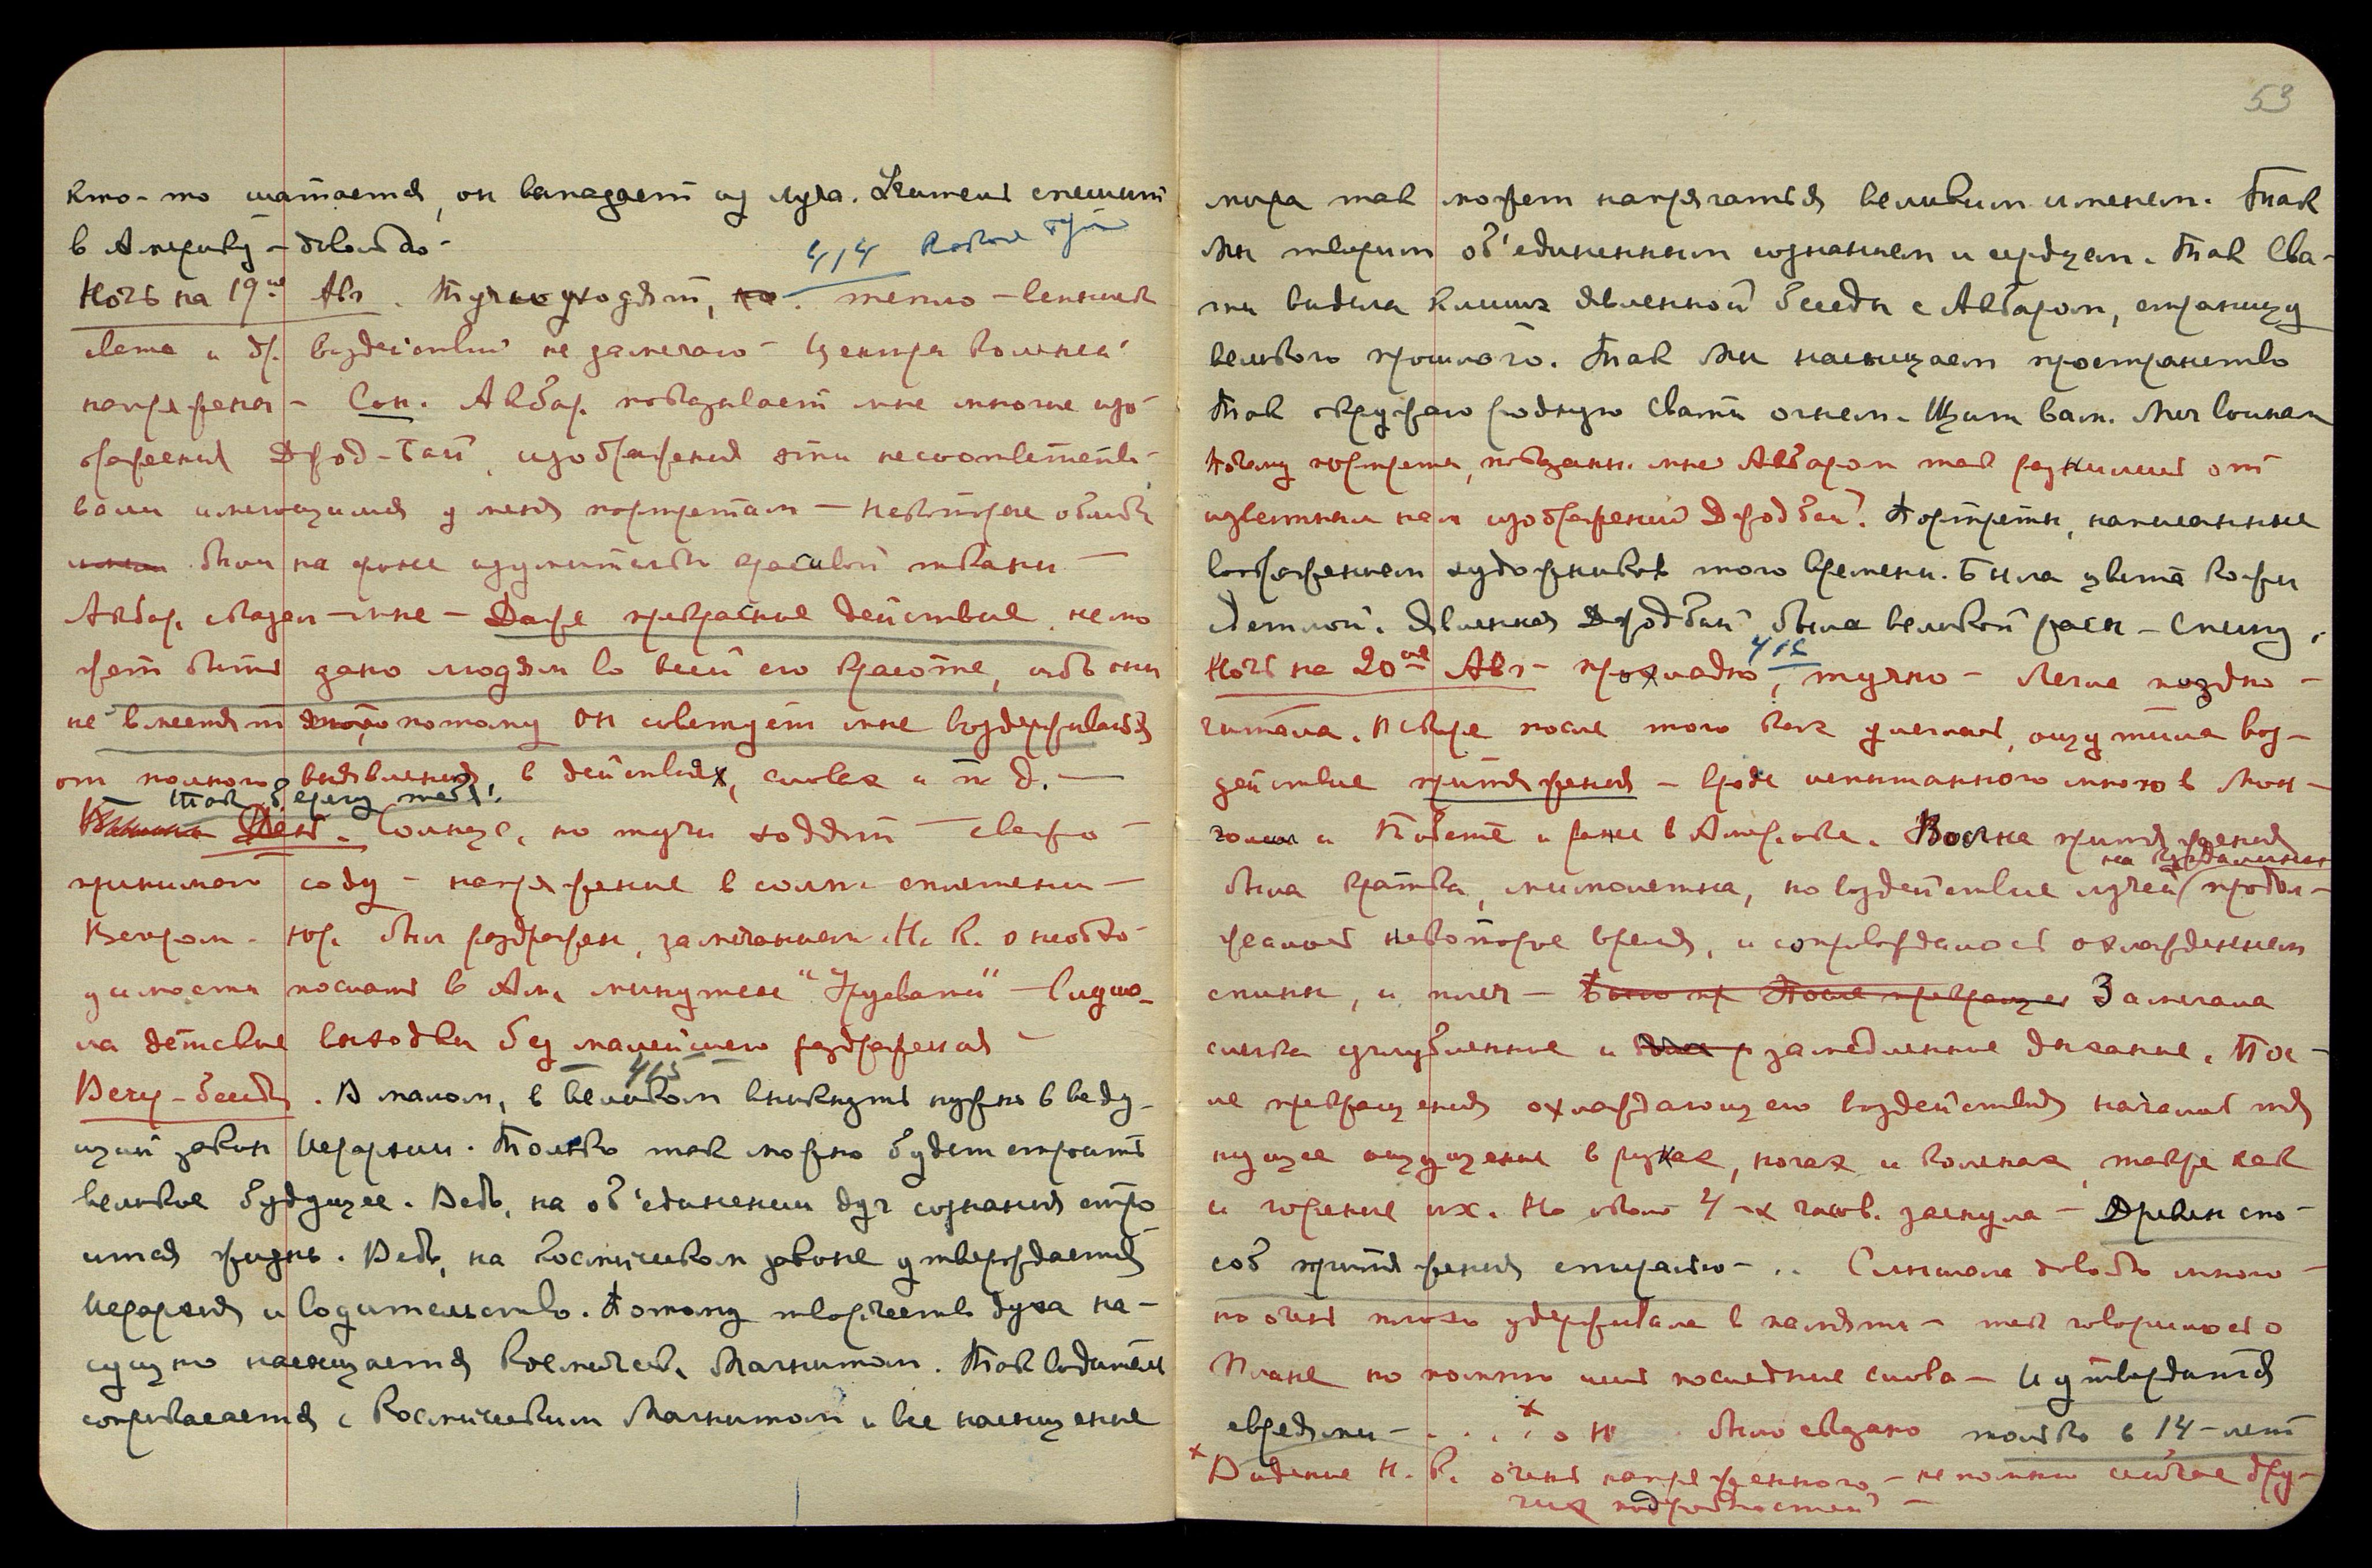 кто-то шатается, он выпадает из луча. Логически спешит
в Америку – сколько –
414
Ночь на 19-ое Авг. Тучи уходят, но. тепло – вспышек
света и др. воздействий не замечаю – центры колений
напряжены – Сон. Акбар показывает мне многие изо-
бражения Джод-Бай, изображения эти не соответство-
вали имеющимся у меня портретам – некоторые облики
были на фоне изумительно красивой ткани –
Акбар сказал мне – Даже прекрасное действие не мо
жет быть дано людям во всей его красоте, ибо они
не вместят потому он советует мне воздерживаться
от полного выявления в действиях, словах и т.д. –
Так берегу тебя!
День. Солнце, но тучи ходят – свежо –
принимаю соду – напряжение в солн. сплетении –
Вечером. Юр. был раздражен замечанием Н. К. о необхо-
димости послать в Ам. минутменс "Урувати" – выдумо-
ла детские выходки без малейшего раздражения –
415
Вечер – беседа. В малом, в великом вникнуть нужно в веду-
щий закон Иерархии. Только так можно будет строить
великое будущее. Ведь, на об'единении дух сознания стро
ится жизнь. Ведь, на космическом законе утверждается
Иерархия и водительство. Потому творчество духа на-
сущно насыщается Космическ. Магнитом. Так водитель
соприкасается с Космическим Магнитом и все насыщение
53
мира так может напрягаться великим именем. Так
Мы творим об'единенным сознанием и сердцем. Так Сва-
ти видела клише явленной беседы с Акбаром, страницу
великого прошлого. Так Мы насыщаем пространство
Так окружаю родную Свати огнем. Щит вам. Мяч воинам
Почему портреты, показанн. мне Акбаром так разнились от
известных нам изображений Джодбай? Портреты, написанные
воображением художников того времени. Была цвета кожи
светлой. Явленная Джодбай была великой расы – Спешу.
416
Ночь на 20-ое Авг – прохладно, тучно – Легла поздно –
читала. Вскоре после того как улеглась, ощутила воз-
действие притяжения – вроде испытанного много в Мон-
голии и Тибете и ранее в Америке. Волна притяжения
была кратка, мимолетна, но воздействие лучей на продолж-
жалось некоторое время, и сопровождалось охлаждением
спины, и плеч – Замечала
слегка углубленное и замедленное дыхание. Пос-
ле прекращения охлаждающего воздействия началось тя
нущее ощущение в руках, ногах и коленах, также как
и горение их. Но около 4-х часов. заснула – Древен спо-
соб притяжения страстно – .. Слышала сколько много –
но очень плохо удерживала в памяти – так говорилось о
Плане но помню лишь последние слова – И утвердится
евреями – . . . . о Н было сказано только в 14-лет
× Видение Н. К. очень напряженного – не помню сейчас дру-
гих подробностей –